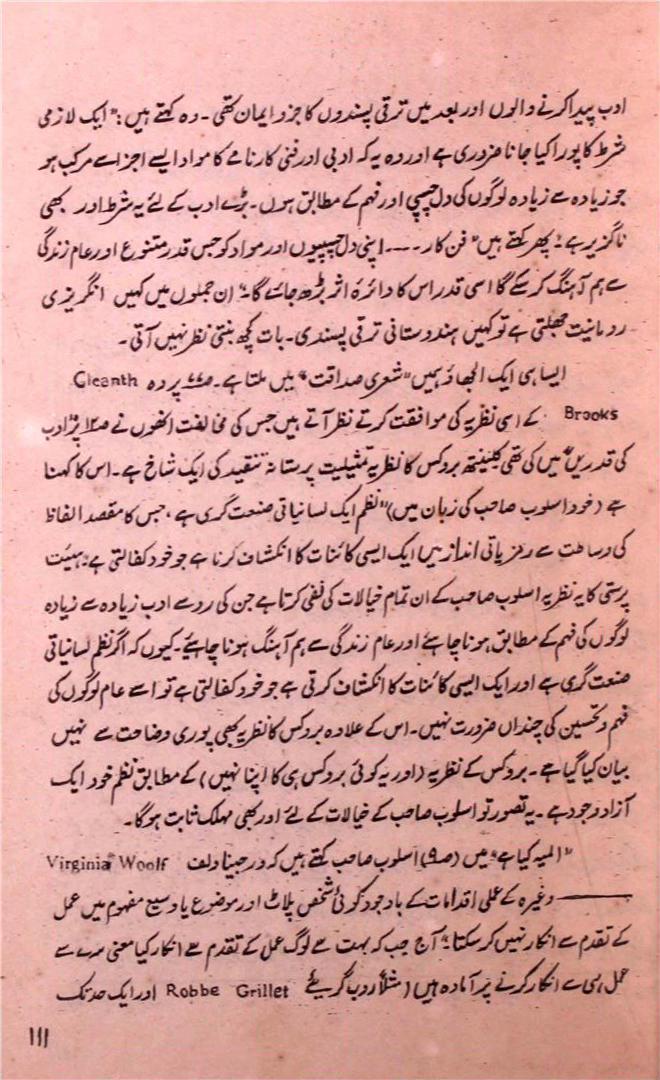 ادب پیدا کرنے والوں اور بعد میں ترقی پسندوں کا جزو ایمان تھی۔ وہ کہتے ہیں: "ایک لازمی
شرط کا پورا کیا جانا ضروری ہے اور وہ یہ کہ ادبی اور فنی کارنامے کا مواد ایسے اجزا سے مرکب ہو
جو زیادہ سے زیادہ لوگوں کی دل چسپی اور فہم کے مطابق ہوں۔ بڑے ادب کے لئے یہ شرط اور بھی
ناگزیر ہے"۔ پھر کہتے ہیں "فن کار ۔۔۔۔ اپنی دل چسپیوں اور مواد کو جس قدر متنوع اور عام زندگی
سے ہم آہنگ کر سکے گا اسی قدر اس کا دائرۂ اثر بڑھ جائے گا۔" ان جملوں میں کہیں انگریزی
رومانیت جھلکتی ہے تو کہیں ہندوستانی ترقی پسندی۔ بات کچھ بنتی نظر نہیں آتی۔
ایسا ہی ایک الجھاؤ ہمیں "شعری صداقت" میں ملتا ہے۔ ص۷۷ پر وہ Cleanth
Brooks کے اسی نظریہ کی موافقت کرتے نظر آتے ہیں جس کی مخالفت انھوں نے ص۱۲ پر "ادب
کی قدریں" میں کی تھی۔ کلینتھ بروکس کا نظریہ تمثیلیت پرستانہ تنقید کی ایک شاخ ہے۔ اس کا کہنا
ہے (خود اسلوب صاحب کی زبان میں) "نظم ایک لسانیاتی صنعت گری ہے، جس کا مقصد الفاظ
کی وساطت سے رمزیاتی انداز میں ایک ایسی کائنات کا انکشاف کرنا ہے جو خود کفالتی ہے" ہیئت
پرستی کا یہ نظریہ اسلوب صاحب کے ان تمام خیالات کی نفی کرتا ہے جن کی رو سے ادب زیادہ سے زیادہ
لوگوں کی فہم کے مطابق ہونا چاہئے اور عام زندگی سے ہم آہنگ ہونا چاہیئے۔ کیوں کہ اگر نظم لسانیاتی
صنعت گری ہے اور ایک ایسی کائنات کا انکشاف کرتی ہے جو خود کفالتی ہے تو اسے عام لوگوں کی
فہم و تحسین کی چنداں ضرورت نہیں۔ اس کے علاوہ بروکس کا نظریہ بھی پوری وضاحت سے نہیں
بیان کیا گیا ہے۔ بروکس کے نظریہ (اور یہ کوئی بروکس ہی کا اپنا نہیں) کے مطابق نظم خود ایک
آزاد وجود ہے۔ یہ تصور تو اسلوب صاحب کے خیالات کے لئے اور بھی مہلک ثابت ہوگا۔
"المیہ کیا ہے" میں (ص۹) اسلوب صاحب کہتے ہیں کہ ورجینا ولف Virginia Woolf
—— وغیرہ کے عملی اقدامات کے باوجود کوئی شخص پلاٹ اور موضوع یا وسیع مفہوم میں عمل
کے تقدم سے انکار نہیں کر سکتا" آج جب کہ بہت سے لوگ عمل کے تقدم سے انکار کیا معنی سرے سے
عمل ہی سے انکار کرنے پر آمادہ ہیں (مثلاً روب گریئے Robbe Grillet اور ایک حد تک
۱۱۱